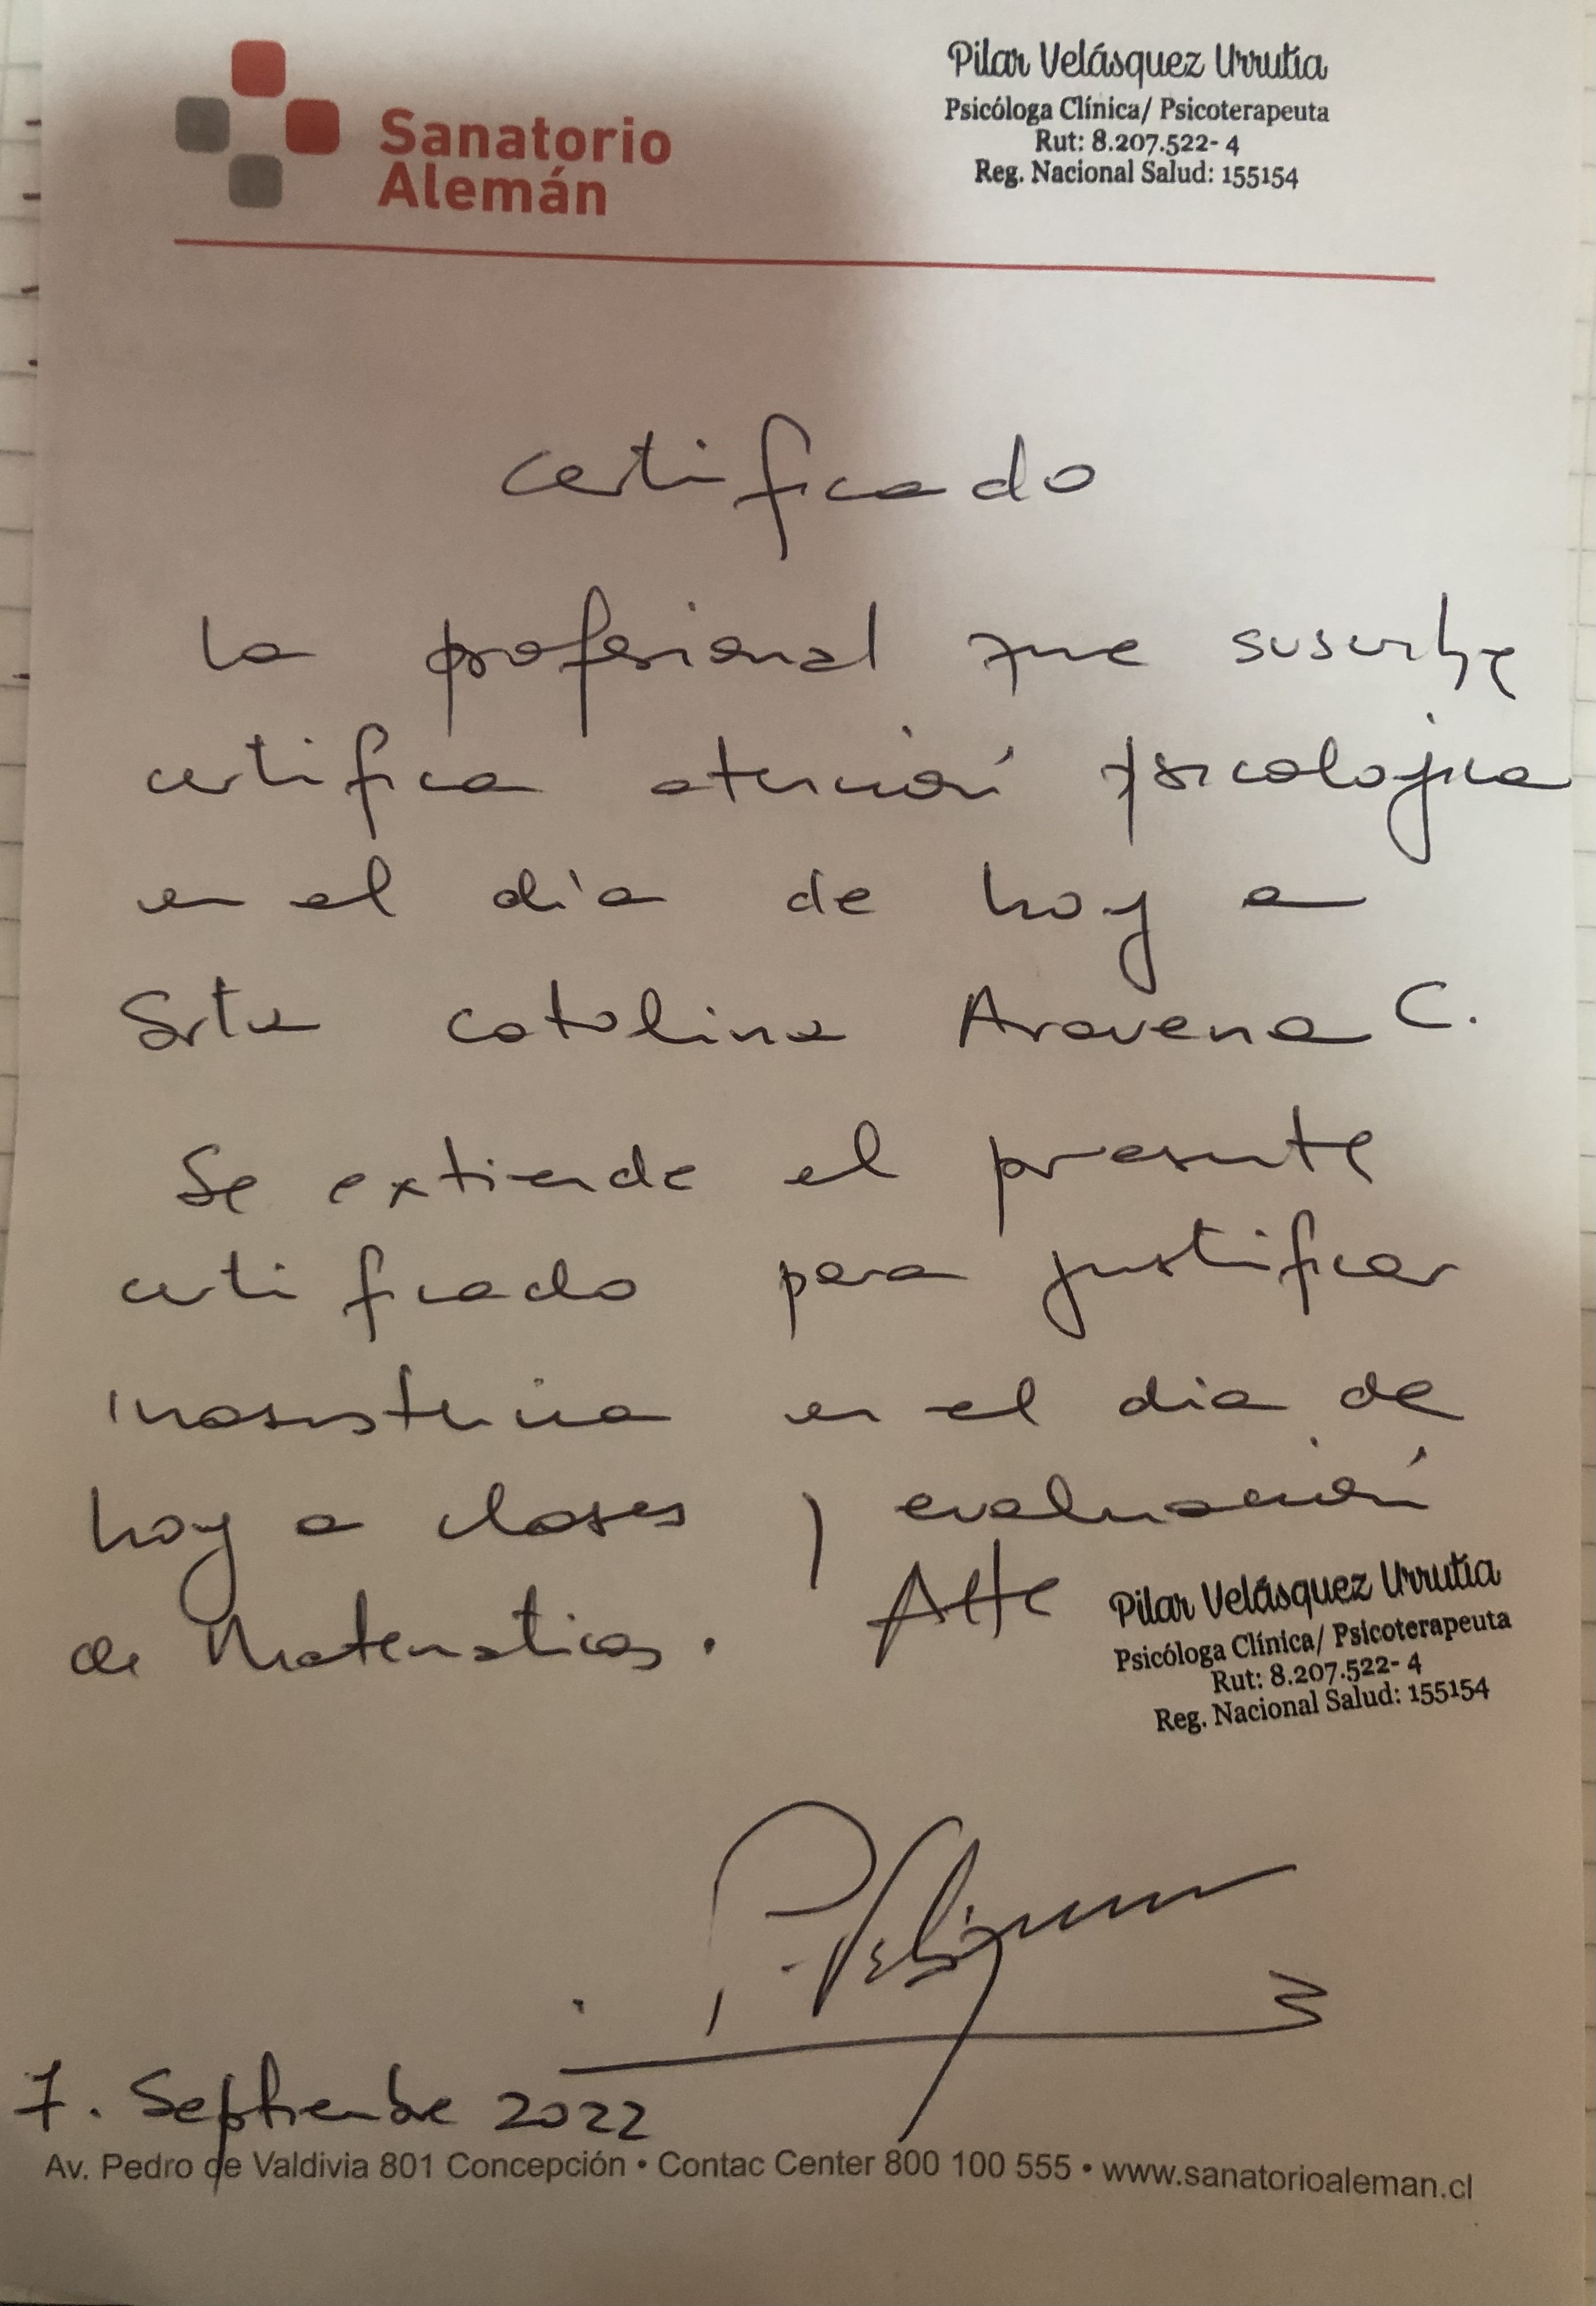 Sanatorio
Alemán
Pilar Velásquez Urrutia
Psicóloga Clínica/ Psicoterapeuta
Rut: 8.207.522- 4
Reg. Nacional Salud: 155154
Certificado
La profesional que suscribe
certifica atención psicológica
en el día de hoy a
Srta Catalina Aravena C.
Se extiende el presente
certificado para justificar
inasistencia en el dia de
hoy a clases y evaluación
de Matematicas. Atte
Pilar Velásquez Urrutia
Psicóloga Clínica/ Psicoterapeuta
Rut: 8.207.522- 4
Reg. Nacional Salud: 155154
P. Velásquez
7. Septiembre 2022
Av. Pedro de Valdivia 801 Concepción • Contac Center 800 100 555 • www.sanatorioaleman.cl